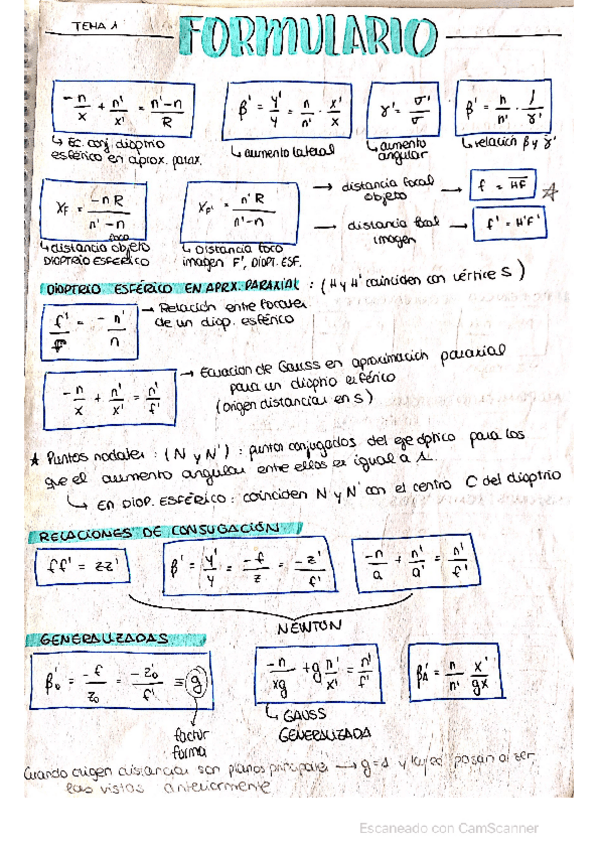 TEMA 1
FORMULARIO
-n/x + n'/x' = n'-n/R
β' = y'/y = n/n' · x'/x
γ' = σ'/σ
β' = n/n' · 1/γ'
↳ Ec. conj. dioptrio esférico en aprox. parax.
↳ aumento lateral
↳ aumento angular
↳ relación β y γ'
X_F = -nR/n'-n
X_F' = n'R/n'-n
→ distancia focal objeto → f = HF ☆
→ distancia focal imagen → f' = H'F'
↳ distancia foco objeto DIOPTRIO ESFÉRICO
↳ Distancia foco imagen F', DIOPT. ESF.
DIOPTRIO ESFÉRICO EN APRX. PARAXIAL : (H y H' coinciden con vértice S)
f'/f = - n'/n
→ Relación entre focales de un diop. esférico
-n/x + n'/x' = n'/f'
→ Ecuacion de Gauss en aproximación paraxial
para un dioptrio esférico
(origen distancias en S)
★ Puntos nodales : (N y N') : puntos conjugados del eje óptico para los
que el aumento angular entre ellos es igual a 1.
↳ EN DIOP. ESFÉRICO : coinciden N y N' con el centro C del dioptrio
RELACIONES DE CONJUGACIÓN
ff' = zz'
β' = y'/y = -f/z = -z'/f'
-n/a + n'/a' = n'/f'
NEWTON
GENERALIZADAS
β'₀ = -f/z₀ = -z'₀/f' ≡ g
-n/xg + g n'/x' = n'/f'
β'_A = n/n' x'/gx
factor forma
↳ GAUSS GENERALIZADA
Cuando origen distancias son planos principales → g=1 y la ec. pasan a ser
las vistas anteriormente
Escaneado con CamScanner